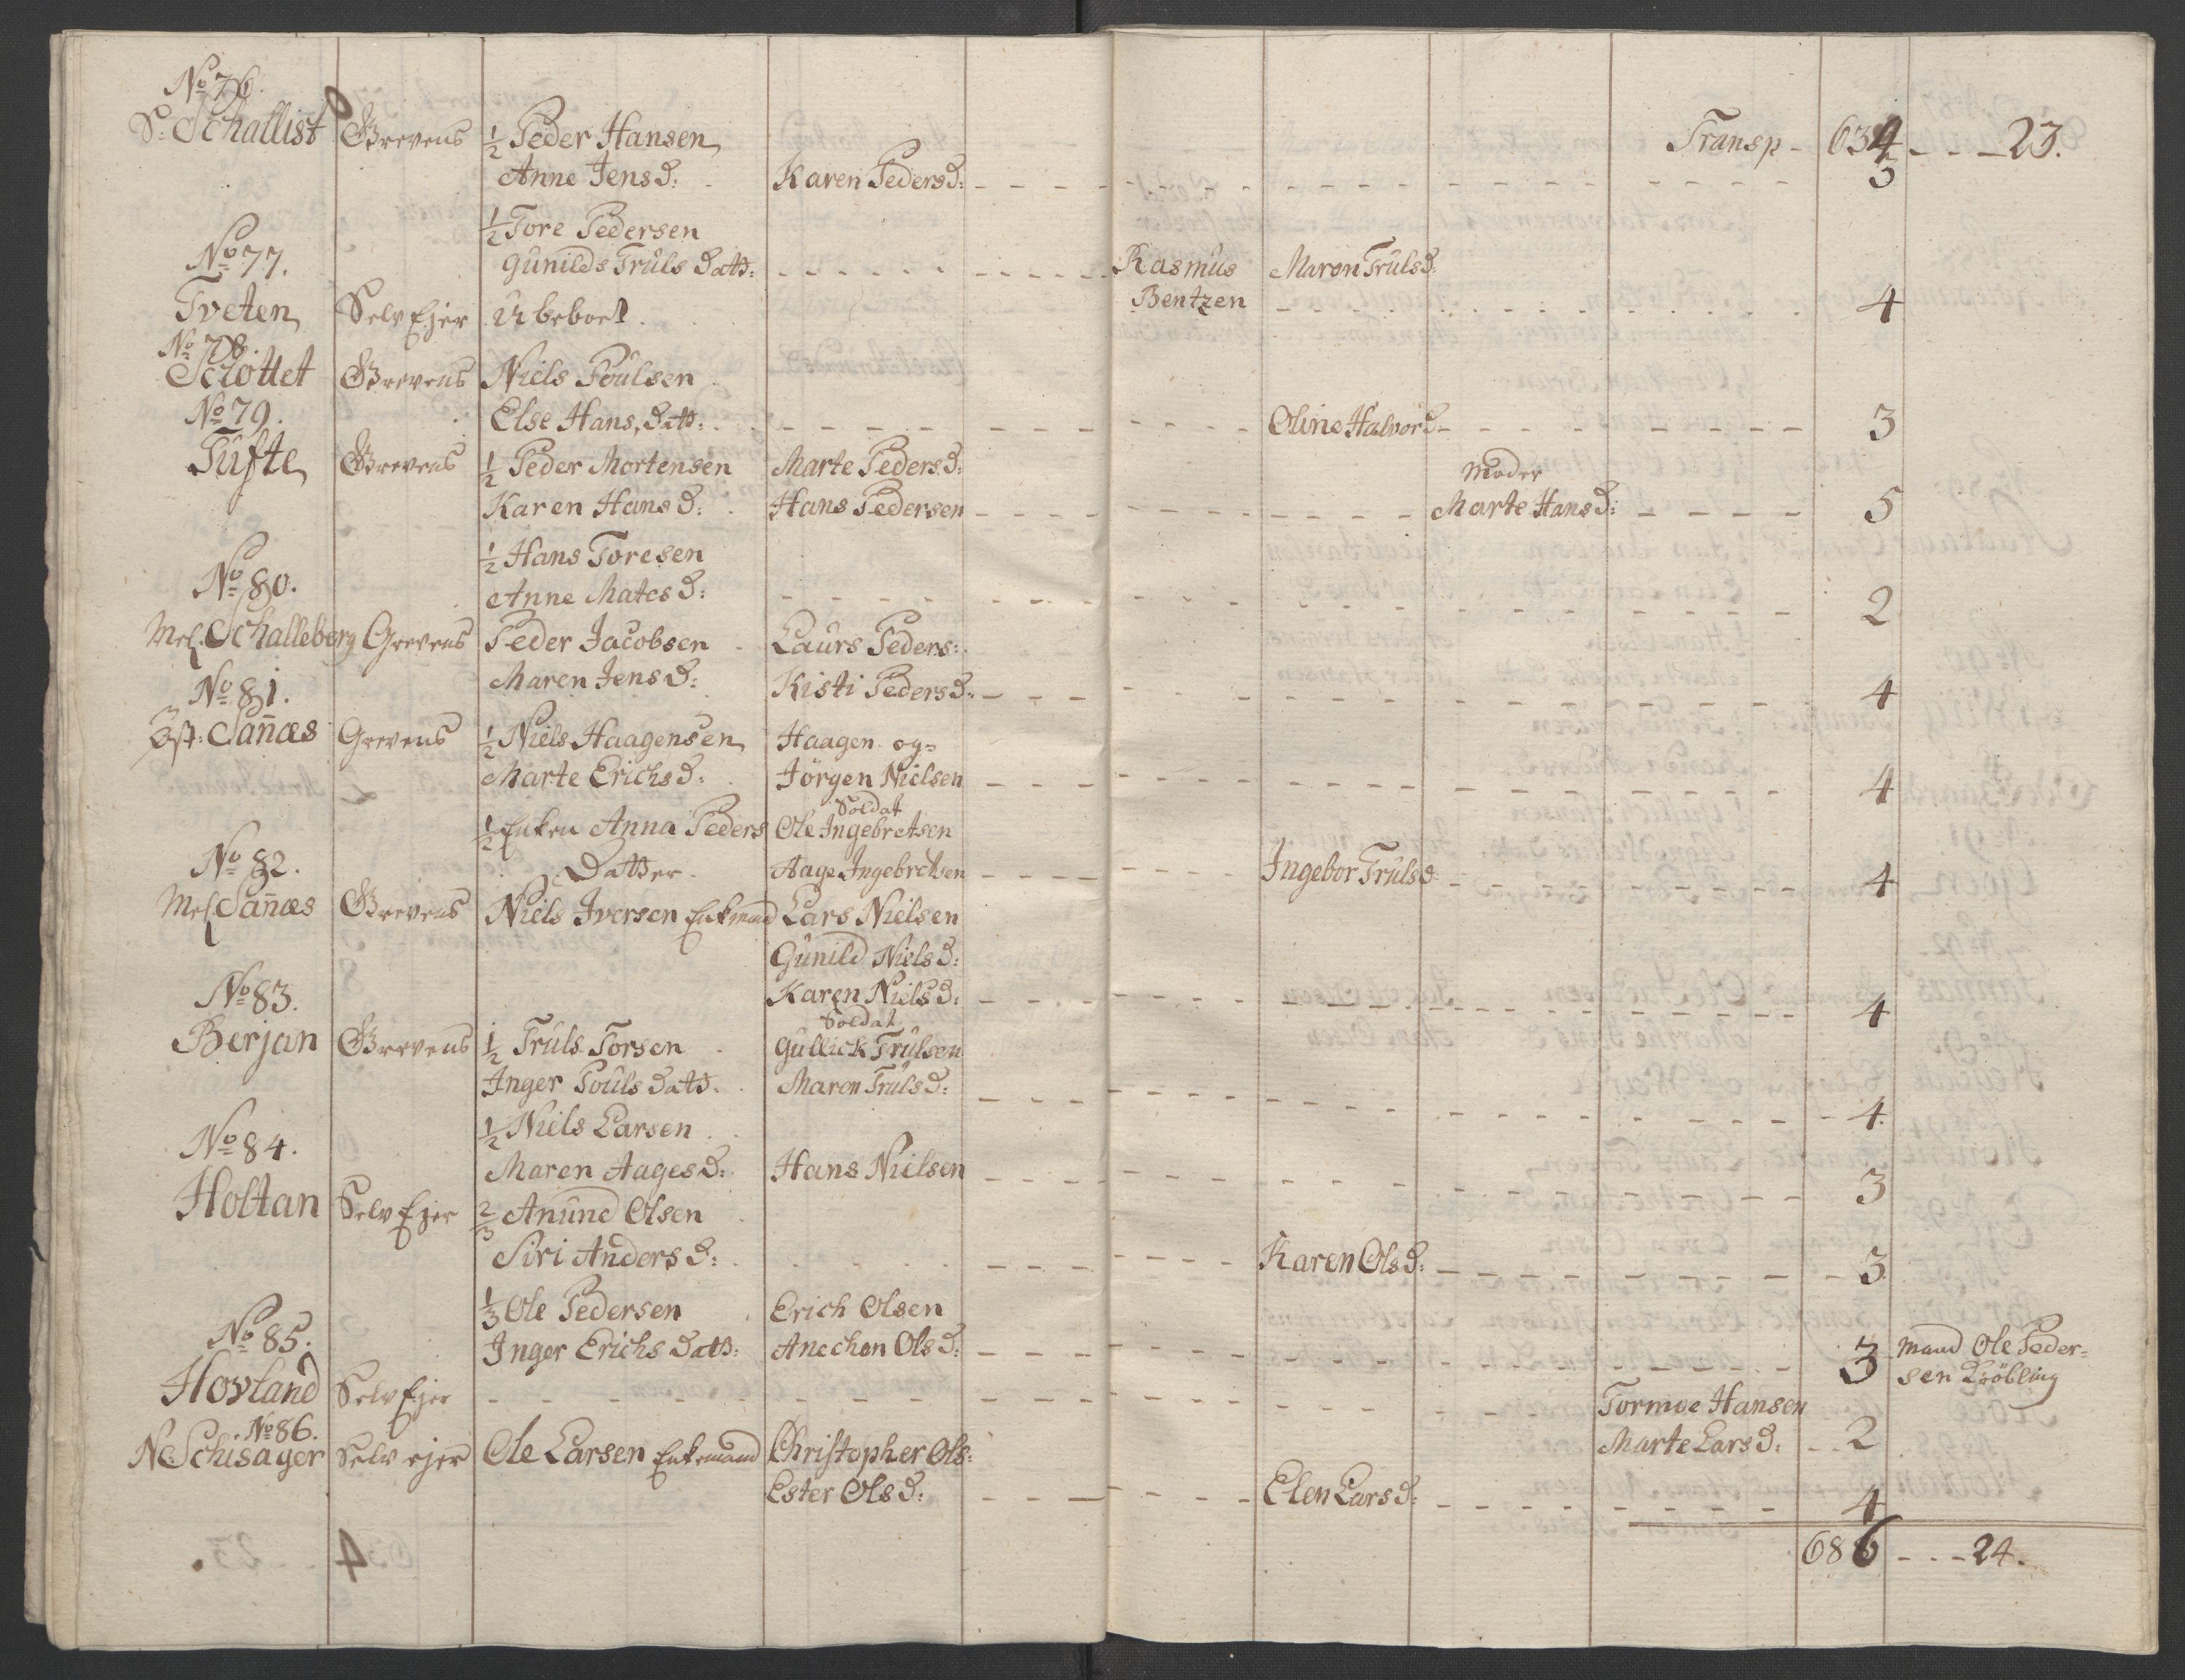 No 76.
S: Schallist Grevens ½ Peder Hansen Transp - 634 - - - 23.
Anne Jens d: Karen Peders d: 3
½ Tore Pedersen
No 77. Gunilds Truls datt: Rasmus Maren Truls d:
Tveten Selv Ejer Ubeboet Bentzen 4
No 78.
Sclottet Grevens Niels Poulsen
No 79. Else Hans datt: Oline Halvor d 3
Tufte Grevens ½ Peder Mortensen Marte Peders d: Moder
Karen Hans d: Hans Pedersen Marte Hans d: 5
½ Hans Toresen
No 80. Anne Mates d: 2
Mel Schalleberg Grevens Peder Jacobsen Laurs Peders:
No 81. Maren Jens d: Kisti Peders d: 4
Øst: Sannæs Grevens ½ Niels Haagensen Haagen og
Marte Erichs d: Jörgen Nielsen 4
Soldat
½ Enken Anna Peders Ole Ingebretsen
No 82. Datter Aage Ingebretsen Ingebor Truls d 4
Mel Sannæs Grevens Niels Iversen Enkemand Lars Nielsen
Gunild Niels d:
No 83. Karen Niels d: 4
Soldat
Berjan Grevens ½ Truls Torsen Gullick Trulsen
Inger Pouls datt. Maren Truls d: 4.
½ Niels Larsen
No 84. Maren Aages d: Hans Nielsen 3
Holtan Selv Ejer ⅔ Anund Olsen
Siri Anders d: Karen Ols d: 3
⅓ Ole Pedersen Erich Olsen
No 85. Inger Erichs datt: Anechen Ols d: 3 Mand Ole Peder-
sen Kröbling
Hovland Selv Ejer Tormoe Hansen
No 86. Marte Lars d: 2
N: Schisager Selv ejer Ole Larsen Enkemand Christopher Ols:
Ester Ols d: Elen Lars d: 4
686 - - - 24.